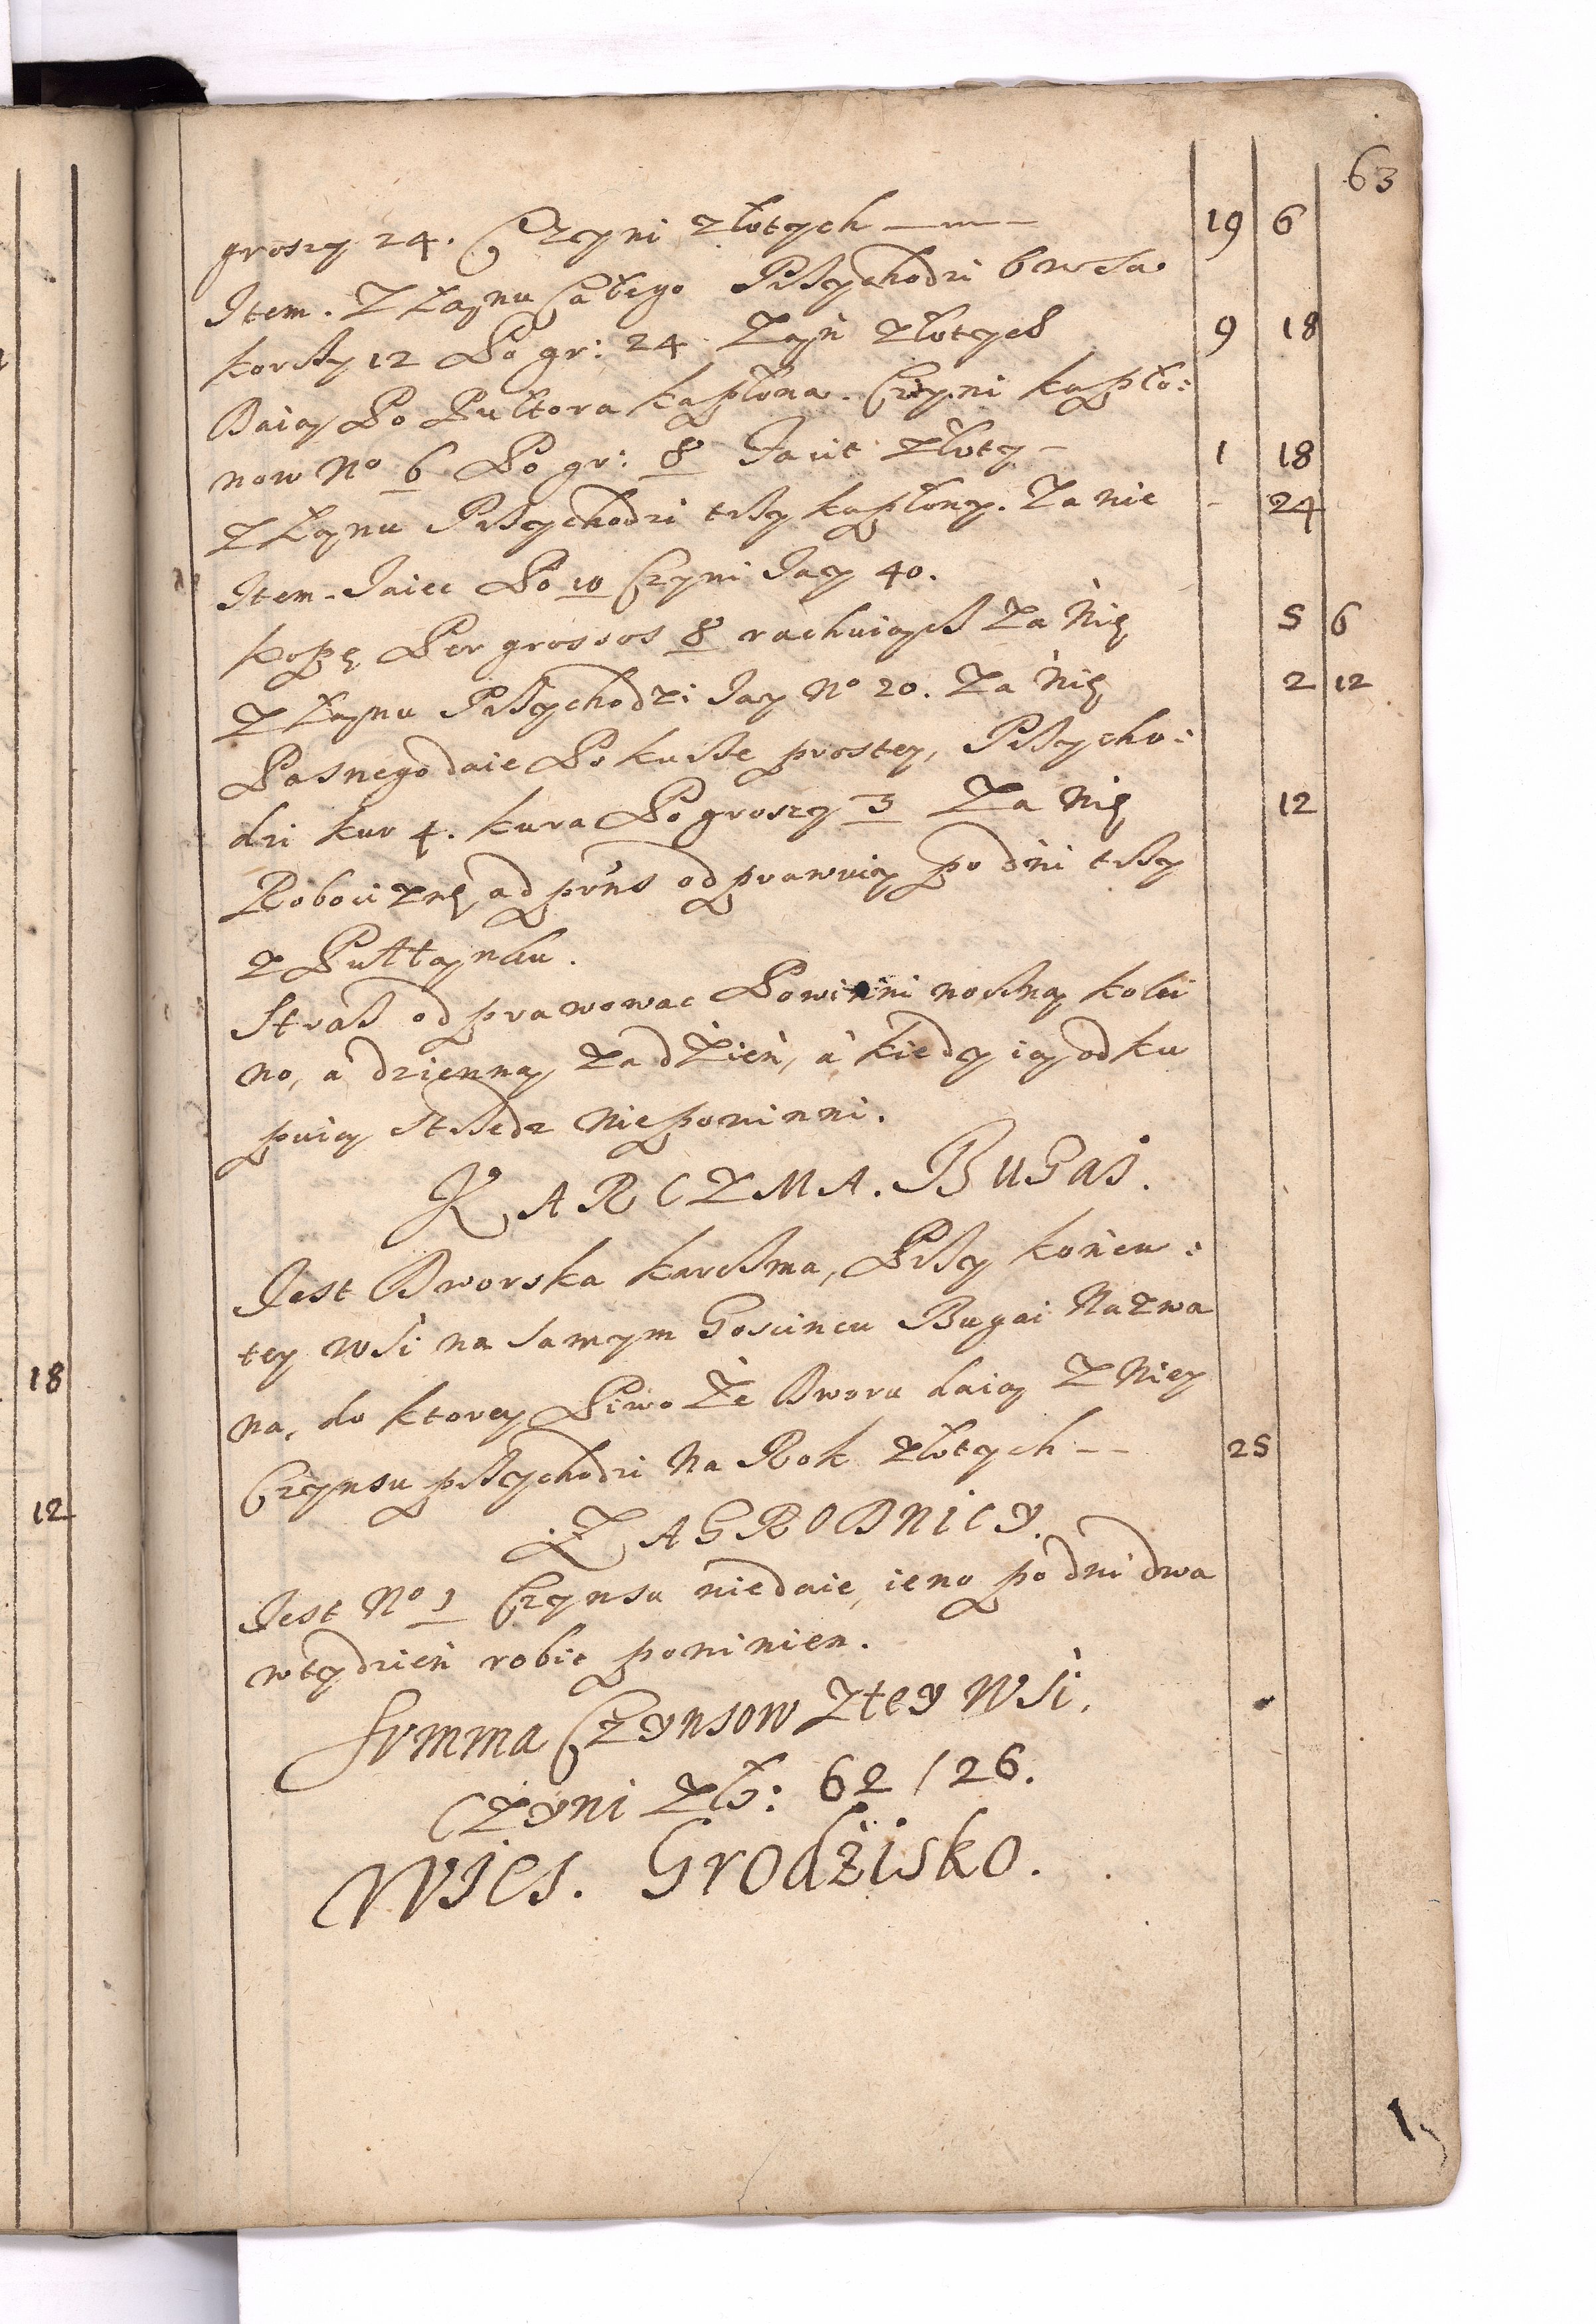 63
groszy 24. Czyni złotych — 19 6
Item. Z Łanu Całego Przychodzi Owsa
korzcy 12 Po gr: 24 Zań złotych 9 18
Daią Po Pułtora kapłona. Czyni kapło:
now No 6 Po gr: 8 Facit złoty – 1 18
Z Łanu Przychodzi trzy kapłony. Za nie - 24
Item. Jaiec Po 10 Czyni Jay 40.
kopę Per grossos 8 rachuiąc Za Nię 5 6
Z Łanu Przychodzi Jay No 20. Za Nię 2 12
Rosnego daie Po kurze prostey, Przycho:
dzi kur 4. kura Po groszy 3 Za Nię 12
Robociznę ad pr̃ns odprawuią po dni trzy
z Pułłanku.
Straż odprawowac Powinni nocną kolei
no, a dzienną za dzień, a kiedy ią odku
puią strzedz Niepowinni.
KARCZMA. BUGAJ.
Jest Dworska karczma, Przy końcu:
tey wsi na samym Goscincu Bugai Nazwa
na, do ktorey Piwo Ze Dworu daią Z Niey
Czynsu przychodzi Na Rok złotych -- 25
ZAGRODNICY.
Jest No 1 Czynsu niedaie, ieno po dni dwa
w tydzień robic powinien.
Summa Czynsow Z tey Wsi.
Czyni Zł: 62 / 26.
Wies. Grodzisko.
18
12